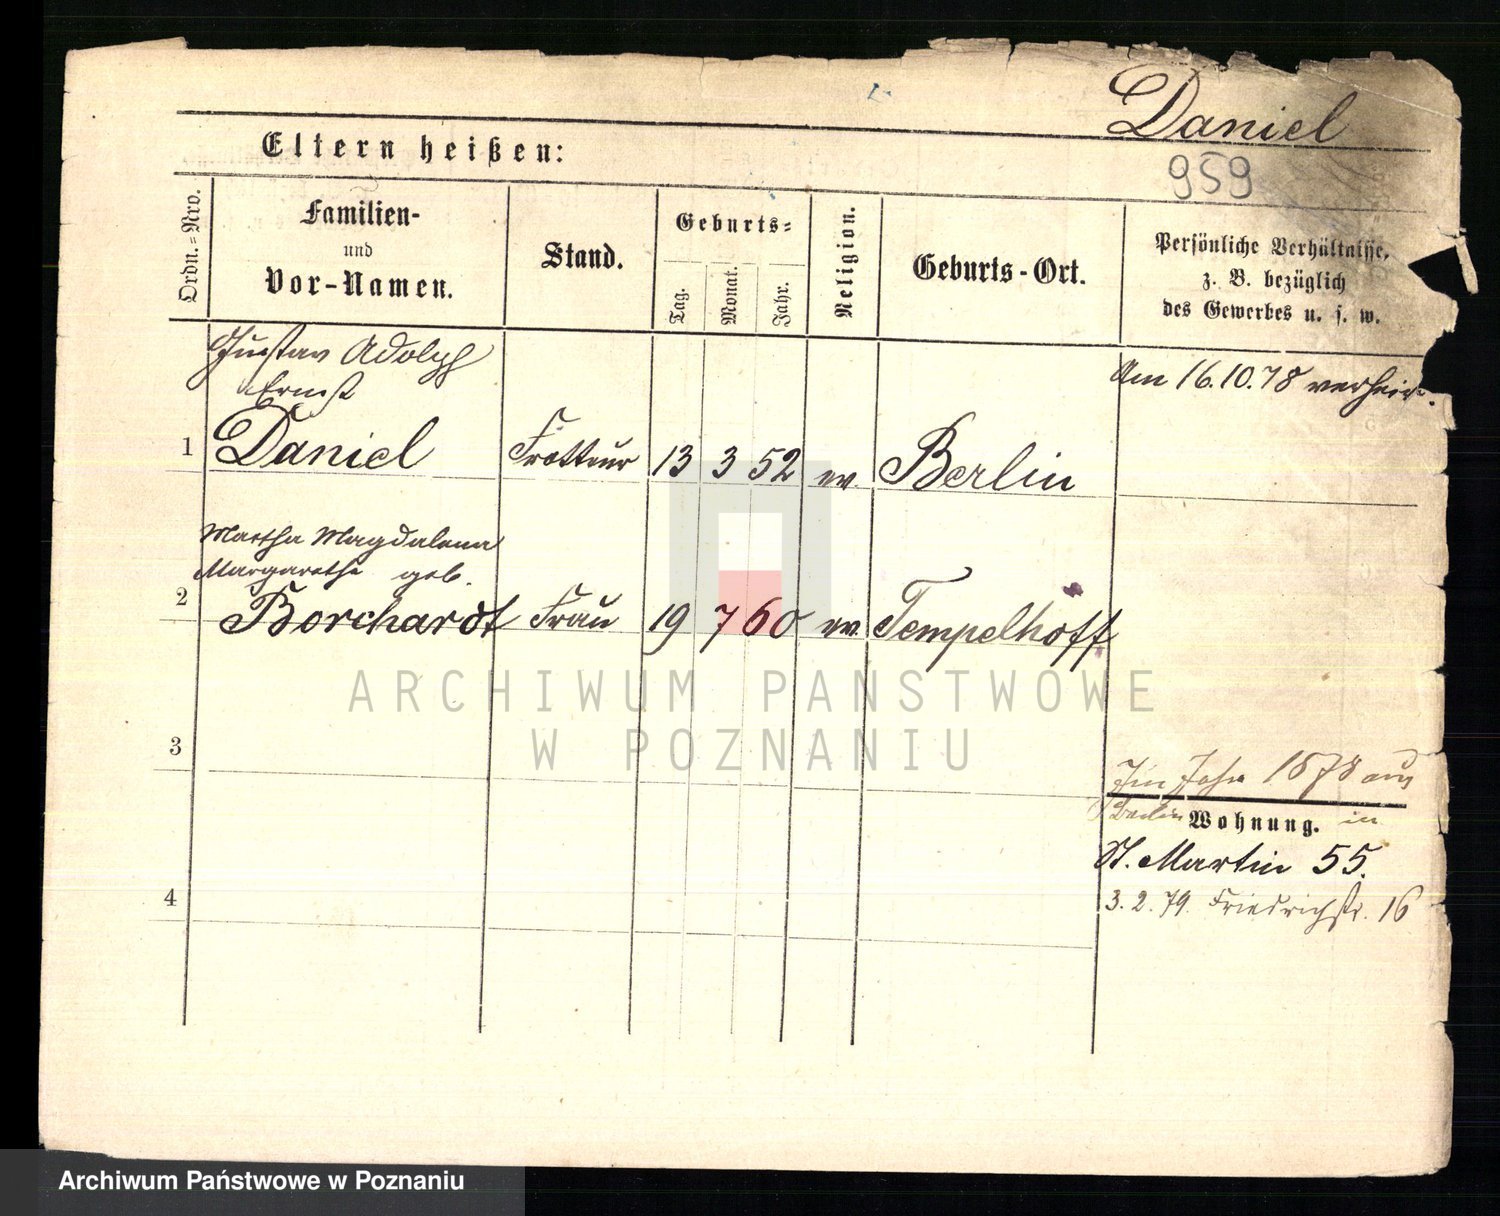 Daniel
Eltern heißen:
959
Ordn.=Nro.
Familien-
und
Vor-Namen.
Stand.
Geburts=
Tag.
Monat.
Jahr.
Religion.
Geburts-Ort.
Persönliche Verhältnisse,
z. B. bezüglich
des Gewerbes u. s. w.
Gustav Adolph
Ernst
1 Daniel Frotteur 13 3 52 ev. Berlin
Am 16.10.78 verheir.
Martha Magdalena
Margarethe geb.
2 Borchardt Frau 19 7 60 ev. Tempelhoff
ARCHIWUM PAŃSTWOWE
W POZNANIU
3
Im Jahr 1878 aus
Berlin Wohnung. in
St. Martin 55.
4
3. 2. 79 Friedrichstr. 16
Archiwum Państwowe w Poznaniu